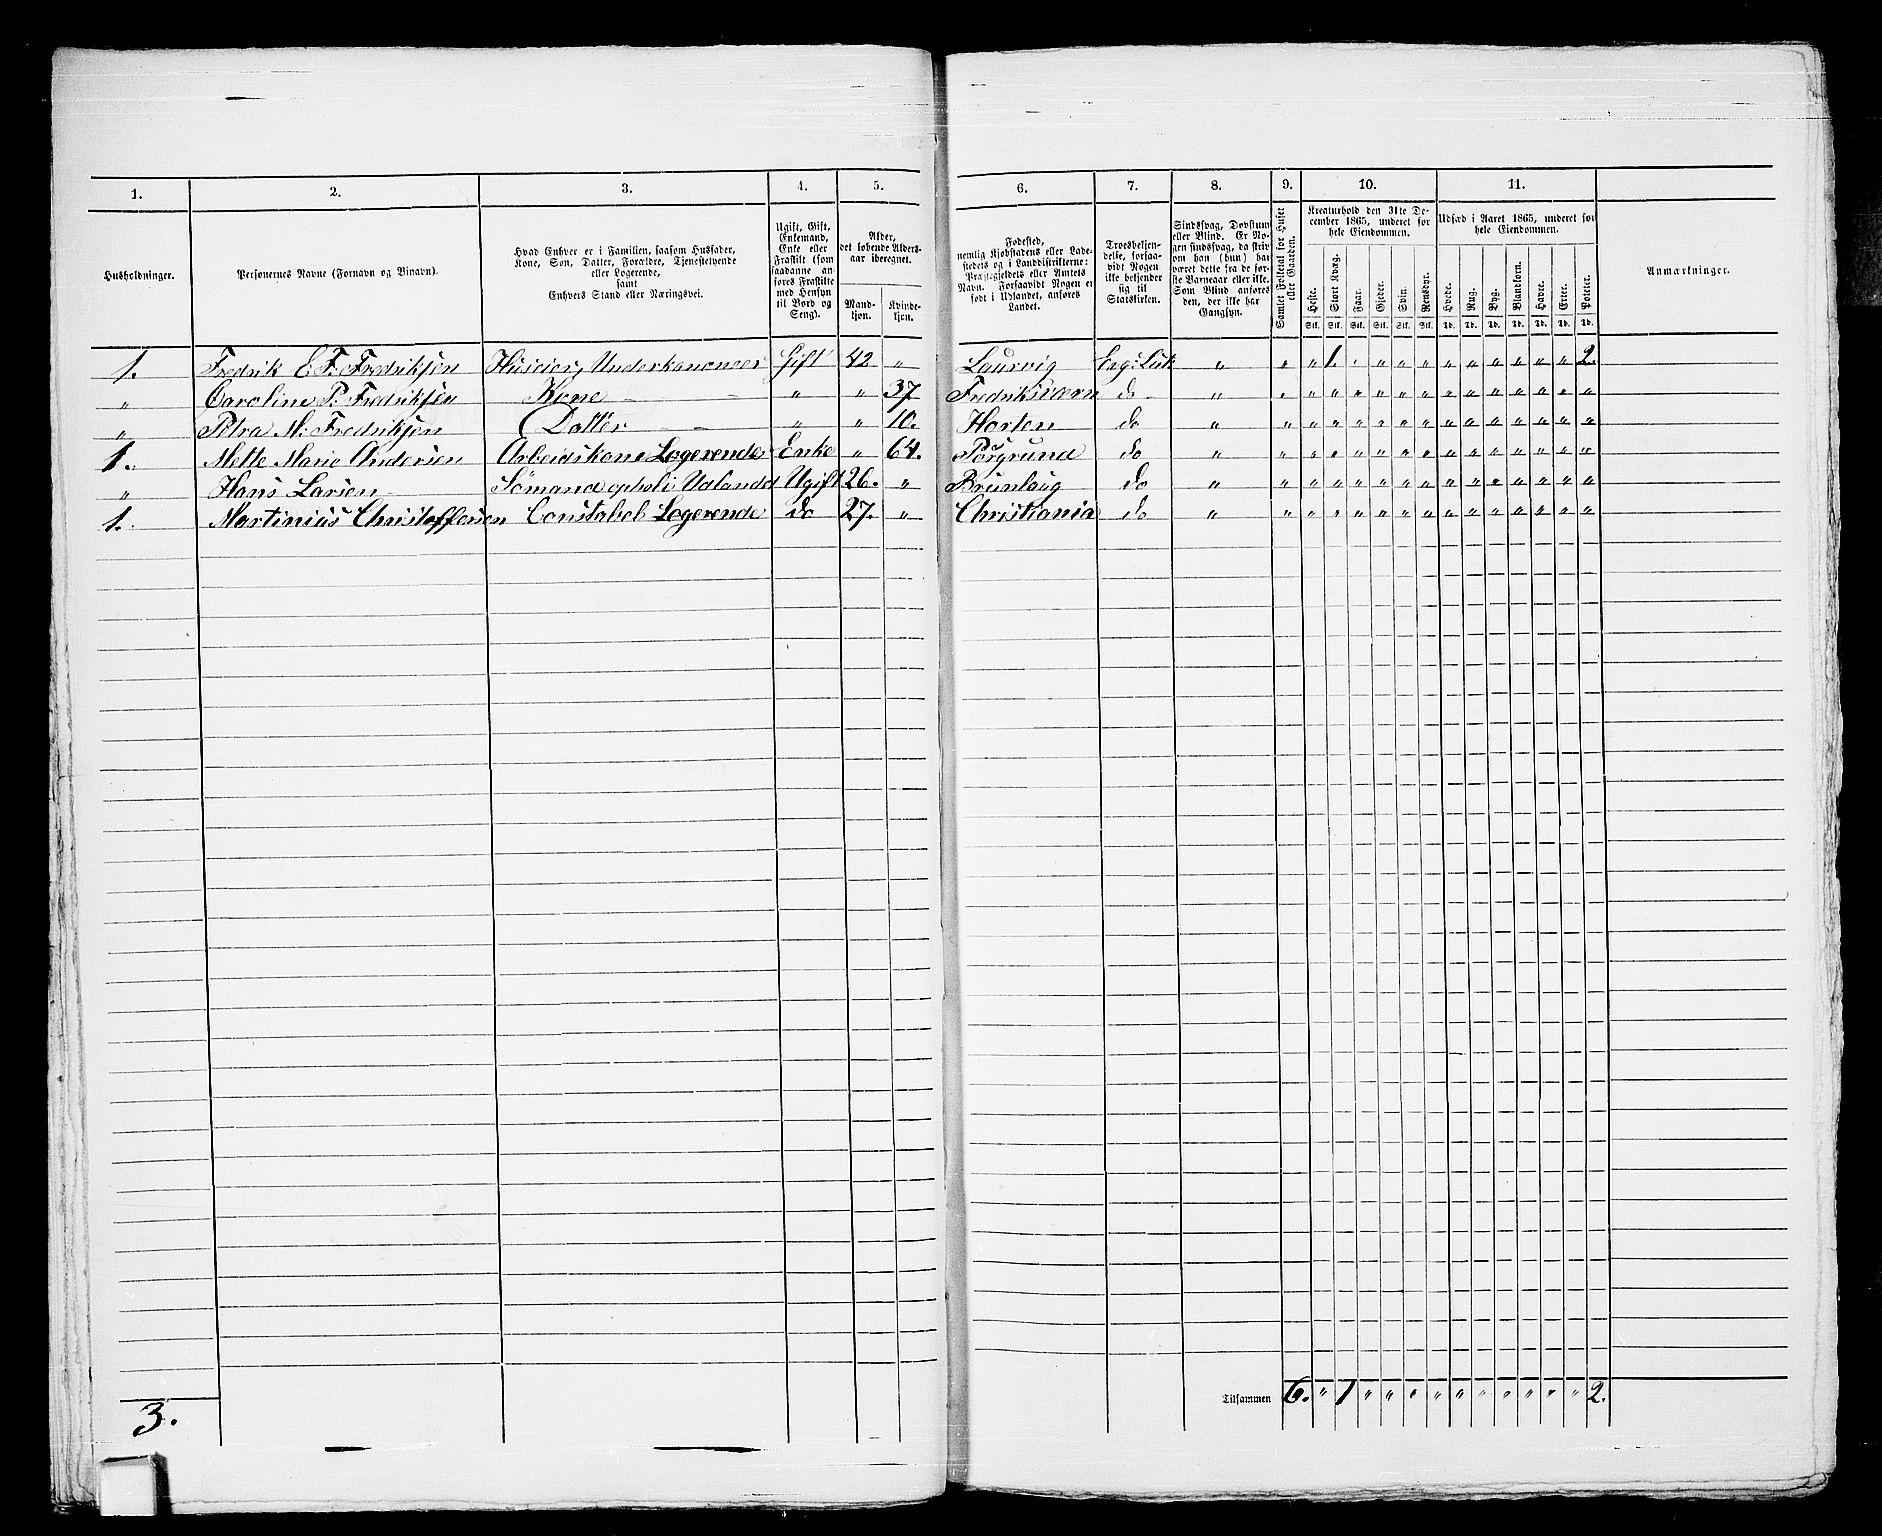 1. 2. 3. 4. 5. 6. 7. 8. 9. 10. 11.
Husholdninger.
Personernes Navne (Fornavn og Binavn).
Hvad Enhver er i Familien, saasom Husfader,
Kone, Søn, Datter, Forældre, Tjenestetyende
eller Logerende,
samt
Enhvers Stand eller Næringsvei.
Ugift, Gift,
Enkemand,
Enke eller
Fraskilt (som
saadanne an-
føres Fraskilte
med Hensyn
til Bord og
Seng).
Alder,
det løbende Alders-
aar iberegnet.
Mand-
kjøn.
Kvinde-
kjøn.
Fødested,
nemlig Kjøbstadens eller Lade-
stedets og i Landdistrikterne:
Præstegjeldets eller Amtets
Navn. Forsaavidt Nogen er
født i Udlandet, anføres
Landet.
Troesbekjen-
delse, forsaa-
vidt Nogen
ikke bekjender
sig til
Statskirken.
Sindssvag, Døvstum
eller Blind. Er No-
gen sindssvag, da skriv
om han (hun) har
været dette fra de før-
ste Barneaar eller ikke.
Som Blind anføres
den, der ikke har
Gangsyn.
Samlet Folketal for Huset
eller Gaarden.
Kreaturhold den 31te De-
cember 1865, underet for
hele Eiendommen.
Heste. Stort Kvæg. Faar. Gjeder. Svin. Rensdyr.
Stk. Stk. Stk. Stk. Stk. Stk.
Udsæd i Aaret 1865, underet for
hele Eiendommen.
Hvede. Rug. Byg. Blandkorn. Havre. Erter. Poteter.
Td. Td. Td. Td. Td. Td. Td.
Anmærkninger.
1. Fredrik E. F. Fredriksen Huseier, Underkanoneer Gift 42 " Laurvig Evg: Luth " " " 1. " " " " " " " " " " 2.
" Caroline P. Fredriksen Kone " " 37 Fredriksværn do " " " " " " " " " " " " " " "
" Petra M. Fredriksen Datter " " 10. Horten do " " " " " " " " " " " " " " "
1. Mette Marie Andersen Arbeidskone Logerende Enke " 64. Porsgrund do " " " " " " " " " " " " " " "
" Hans Larsen Sømand opholi Udlandet Ugift 26. " Brunlaug do " " " " " " " " " " " " " " "
1. Martinius Christoffersen Constabel Logerende do 27. " Christiania do " " " " " " " " " " " " " " "
Tilsammen 6. " 1 " " " " " " " " " " 2.
3.